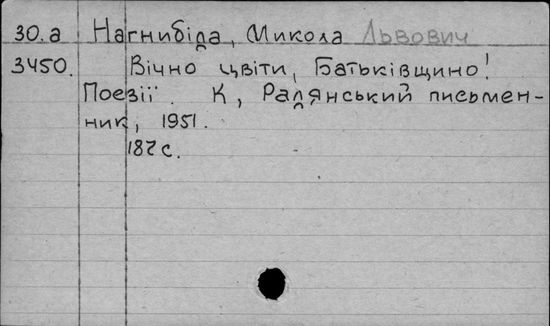 30.а Нагнибіда, Микола Львович
3450. Вічно цвіти, Батьківщино!
Поезії. К, Радянський письмен-
ник, 1951.
187 с.